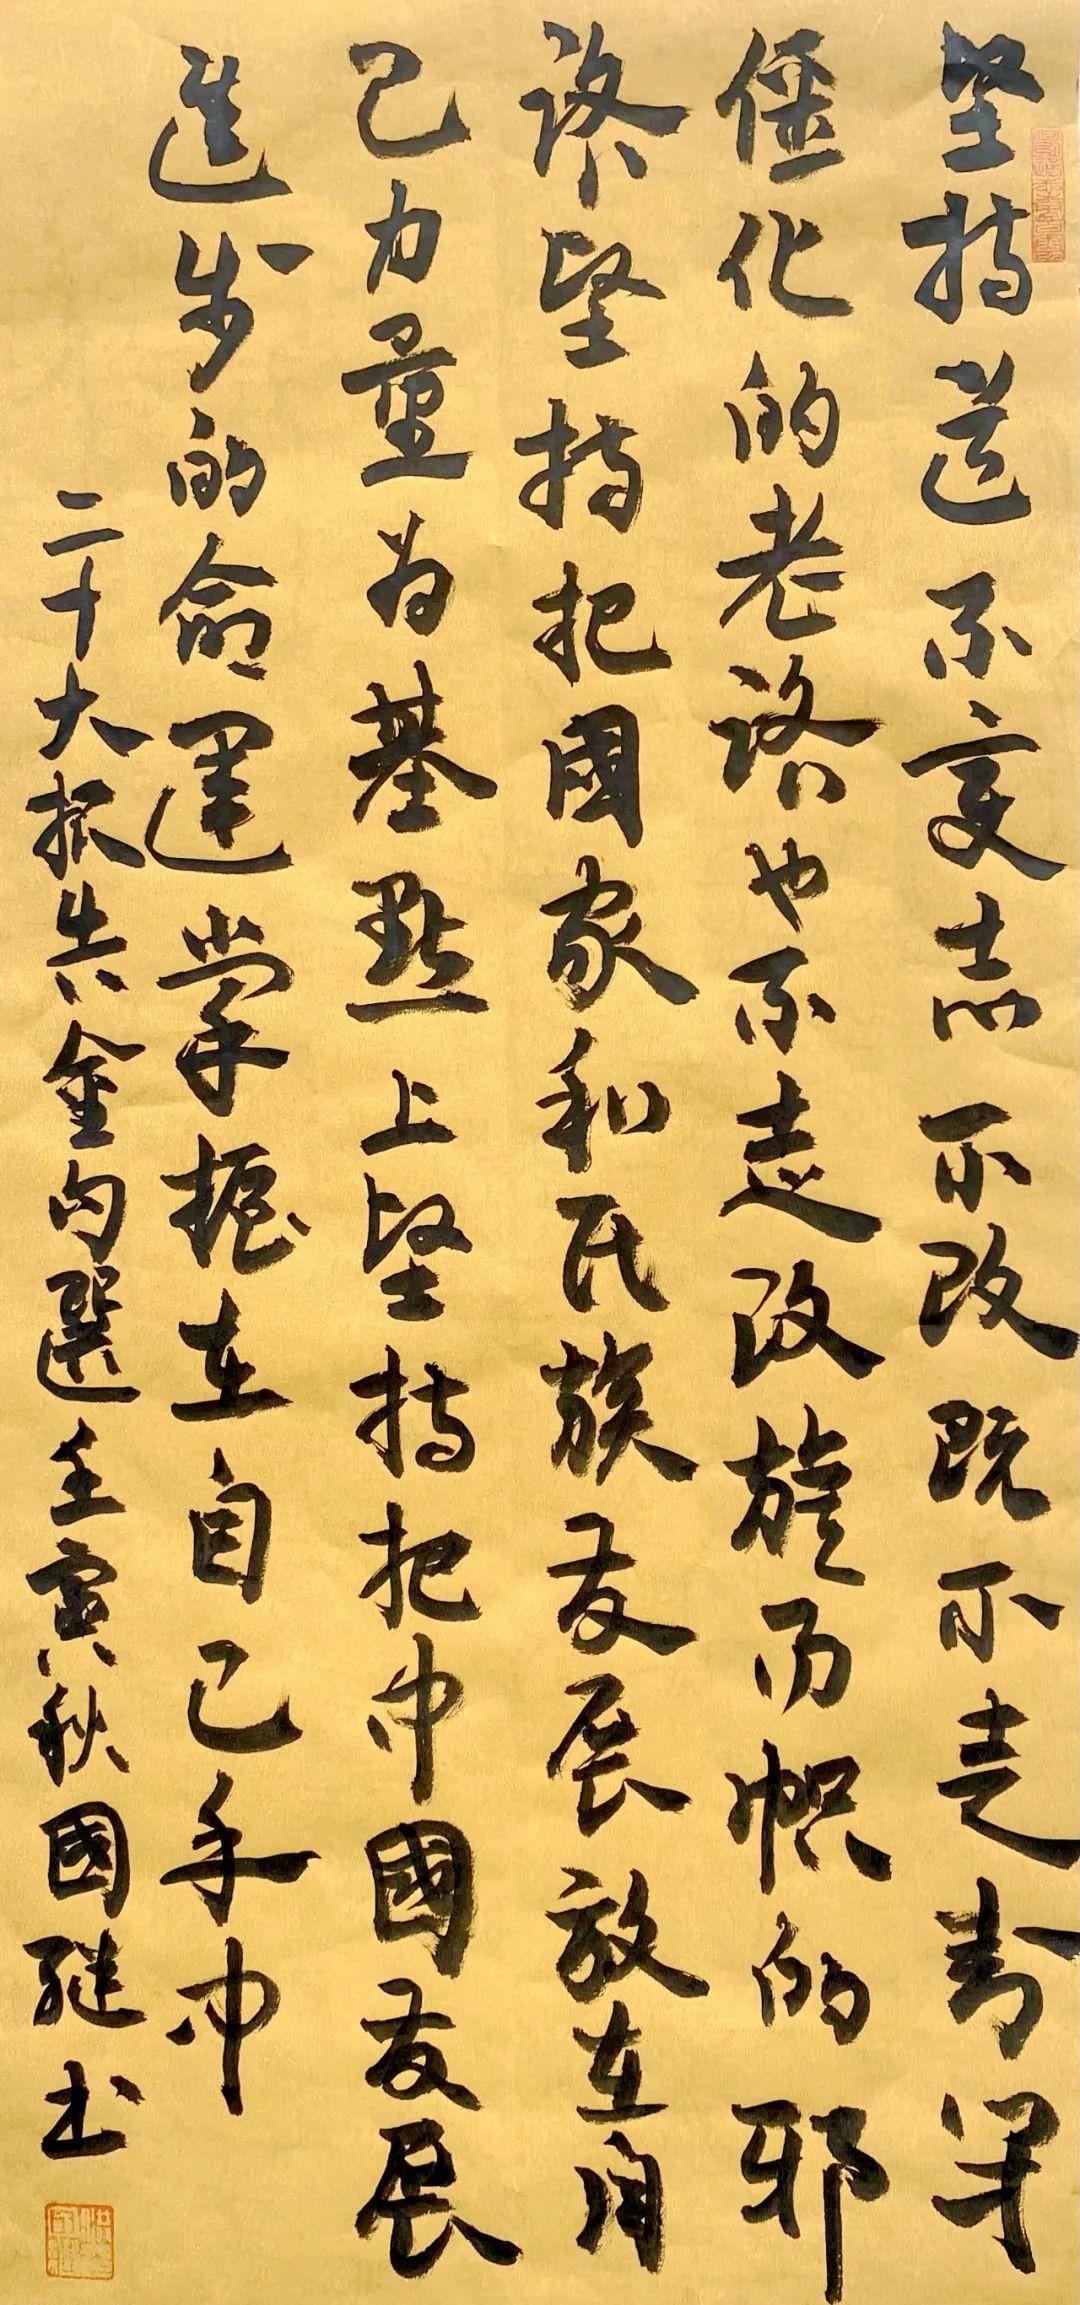 坚持道不变志不改既不走封闭
僵化的老路也不走改旗易帜的邪
路坚持把國家和民族发展放在自
己力量的基點上坚持把中國发展
進步的命運掌握在自己手中
二十大报告金句選壬寅秋國继书